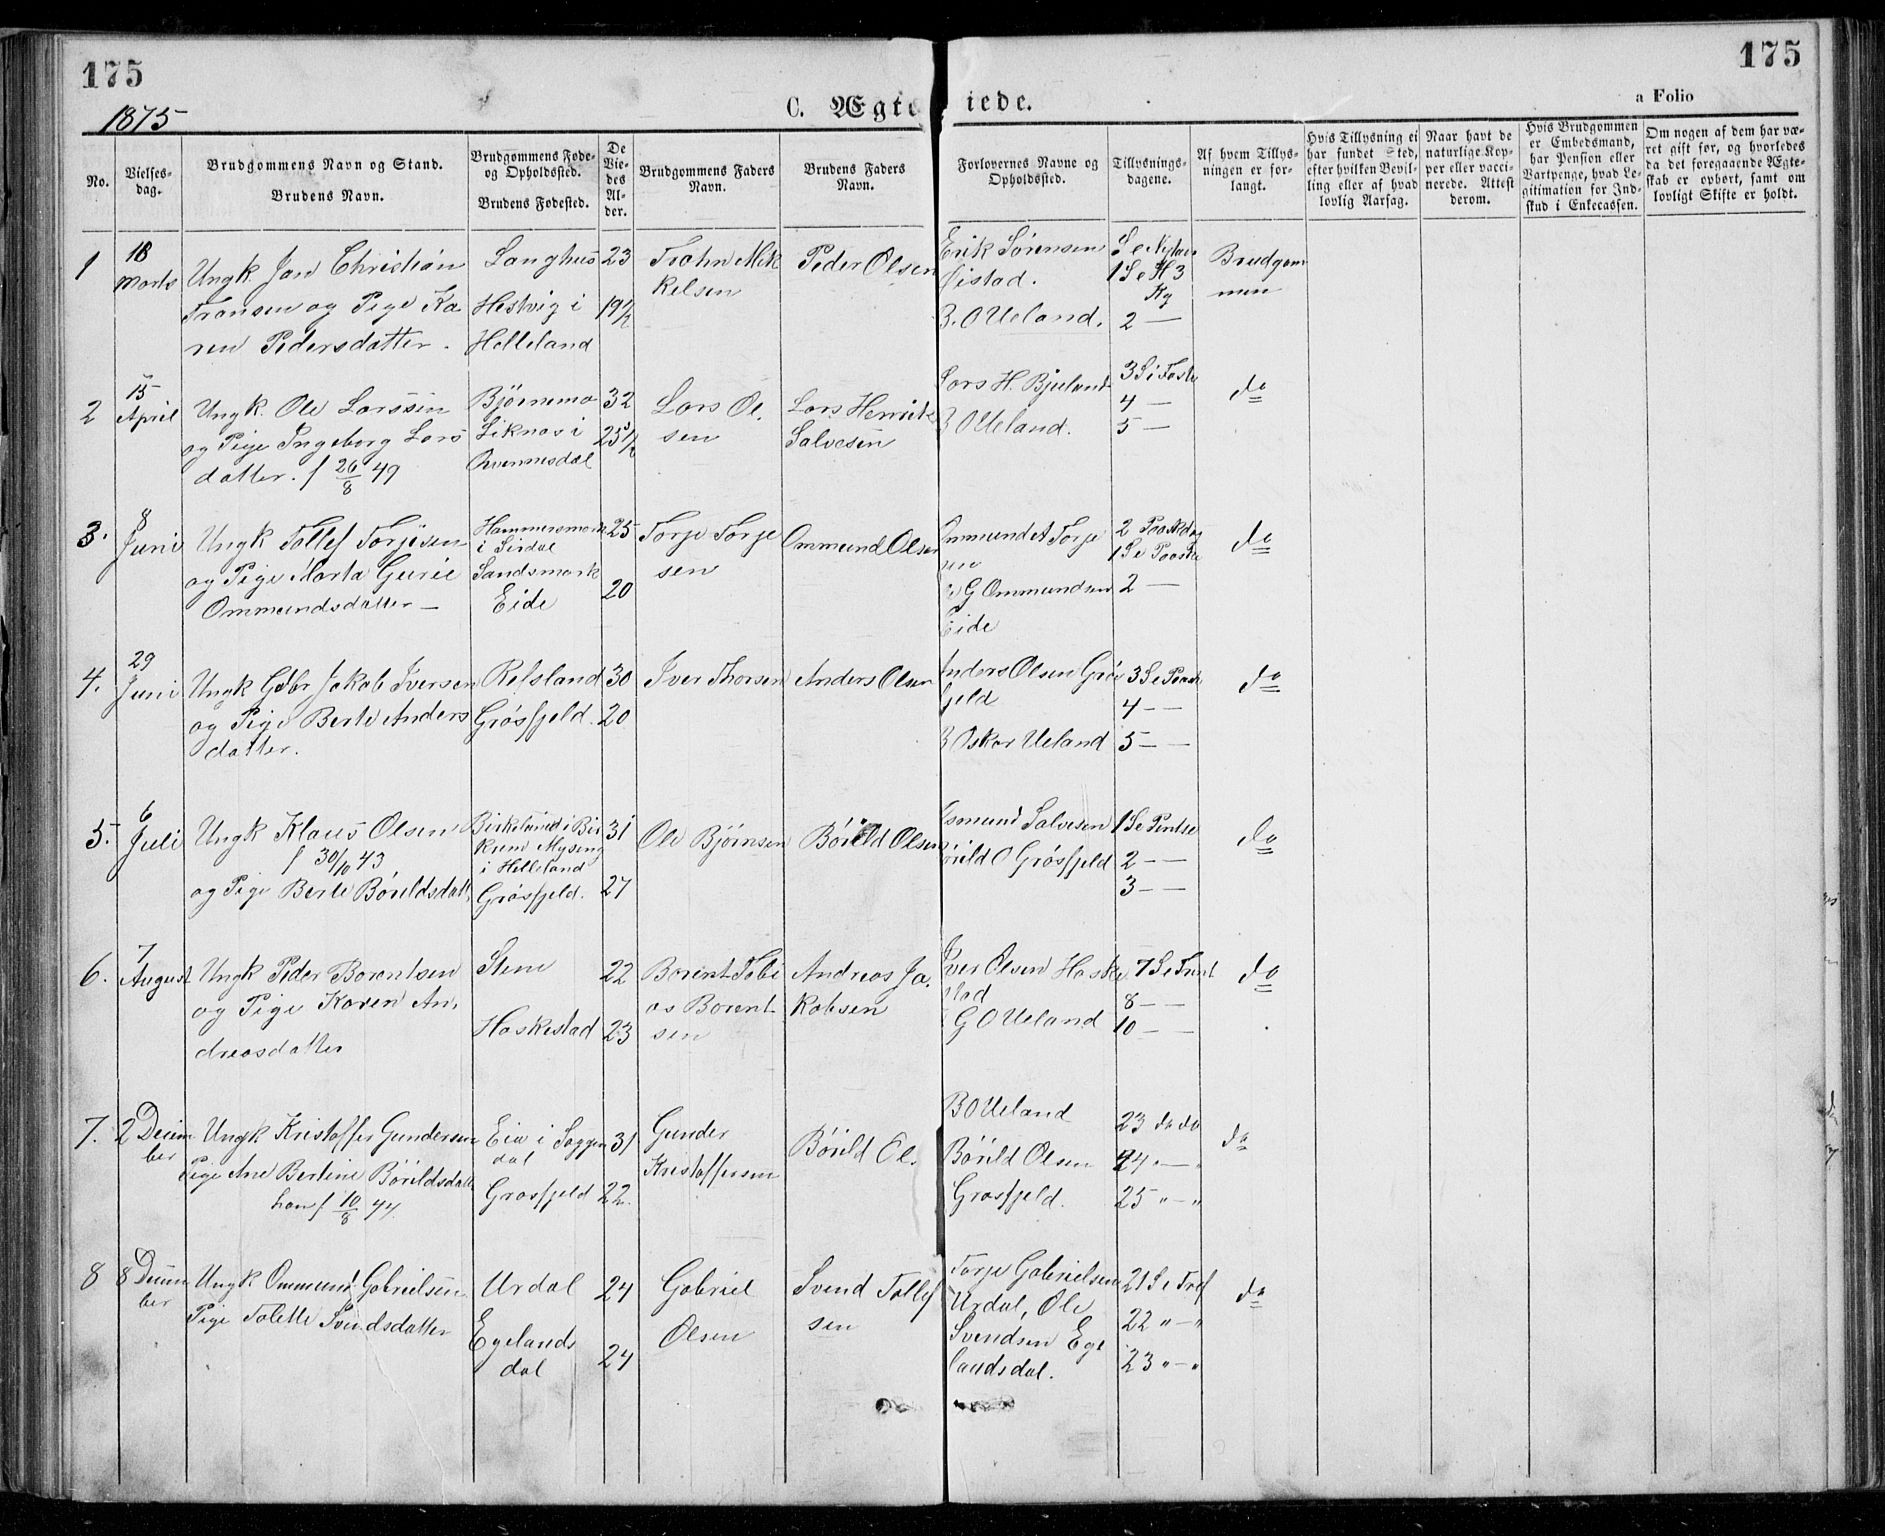 175
175
1875
C. Ægteviede.
a Folio
No.
Vielses-
dag.
Brudgommens Navn og Stand.
Brudens Navn.
Brudgommens Føde-
og Opholdssted.
Brudens Fødested.
De
Vie-
des
Al-
der.
Brudgommens Faders
Navn.
Brudens Faders
Navn.
Forlovernes Navne og
Opholdssted.
Tillysnings-
dagene.
Af hvem Tillys-
ningen er for-
langt.
Hvis Tillysning ei
har fundet Sted,
efter hvilken Bevil-
ling eller af hvad
lovlig Aarsag.
Naar havt de
naturlige Kop-
per eller vacci-
nerede. Attest
derom.
Hvis Brudgommen
er Embedsmand,
har Pension eller
Vartpenge, hvad Le-
gitimation for Ind-
skud i Enkecassen.
Om nogen af dem har væ-
ret gift før, og hvorledes
da det foregaaende Ægte-
skab er ophørt, samt om
lovligt Skifte er holdt.
1
18
Marts
Ungk. Jan Christian
Transen og Pige Ka
ren Pedersdatter.
Langhus
Hestvig i
Helleland
23
19½
Trahn Mik
kelsen
Peder Olsen
Erik Sørensen
Øistad.
B. O Ueland.
S e Nytaar
1 S e H 3
Kg
2 —
Brudgom
men
2
15
April
Ungk. Ole Larssen
og Pige Ingeborg Lars
datter. f 26/8 49
Bjørnemo
Liknes i
Qvinnesdal
32
25½
Lars Ol.
sen
Lars Henrik
Salvesen
Lars H. Bjuland
B O Ueland.
3 S i Faste
4 —
5 —
do
3.
8
Juni
Ungk Tollef Torjesen
og Pige Marta Gurie
Ommundsdatter —
Hammersmark
i Sirdal
Sandsmark
Eide
25
20
Torje Torje
sen
Ommund Olsen
Ommund A Torje
sen
G Ommundsen
Eide
2 Paaskdag
1 S e Paaske
2 —
do
4.
29
Juni
Ungk Gdbr Jakob Iversen
og Pige Berte Anders
datter.
Refsland
Grøsfjeld.
30
20
Iver Thorsen
Anders Olsen
Anders Olsen Grøs
fjeld
B Oskar Ueland
3 S e Paask
4 — —
5 — —
do
5.
6
Juli
Ungk Klaus Olsen
f 30/10 43
og Pige Berte Børildsdatt.
Birkeland i Bir
krem Mysing
i Helleland
Grøsfjeld.
31
27
Ole Bjørnsen
Børild Olsen
Asmund Salvesen
Børild O Grøsfjeld
1 S e Pentse
2 — —
3 — —
do
6.
7
August
Ungk Peder Borentsen
og Pige Karen An,
dreasdatter
Stene
Haskestad
22
23
Borent Tobi
as Borent
sen
Andreas Ja.
kobsen
Iver Olsen Haske
stad
G O Ueland
7 S e Trint
8 — —
10 — —
do
7.
2 Decem
ber
Ungk Kristoffer Gundersen
Pige Ane Bertine Børildsdatt
han f 10/8 44.
Eia i Soggen
dal
Grøsfjeld
31
22.
Gunder
Kristoffersen
Børild Ol.
B O Ueland
Børild Olsen
Grøsfjeld.
23 do do
24 " — "
25 " — "
do
8
8 Decem
ber
Ungk Ommund Gabrielsen
Pige Tolette Svendsdatter
Urdal
Egelands
dal
24
24
Gabriel
Olsen
Svend Tollef
sen
Torje Gabrielsen
Urdal, Ole
Svendsen Ege
landsdal.
21 S e Tref
22 " — "
23 " — "
do